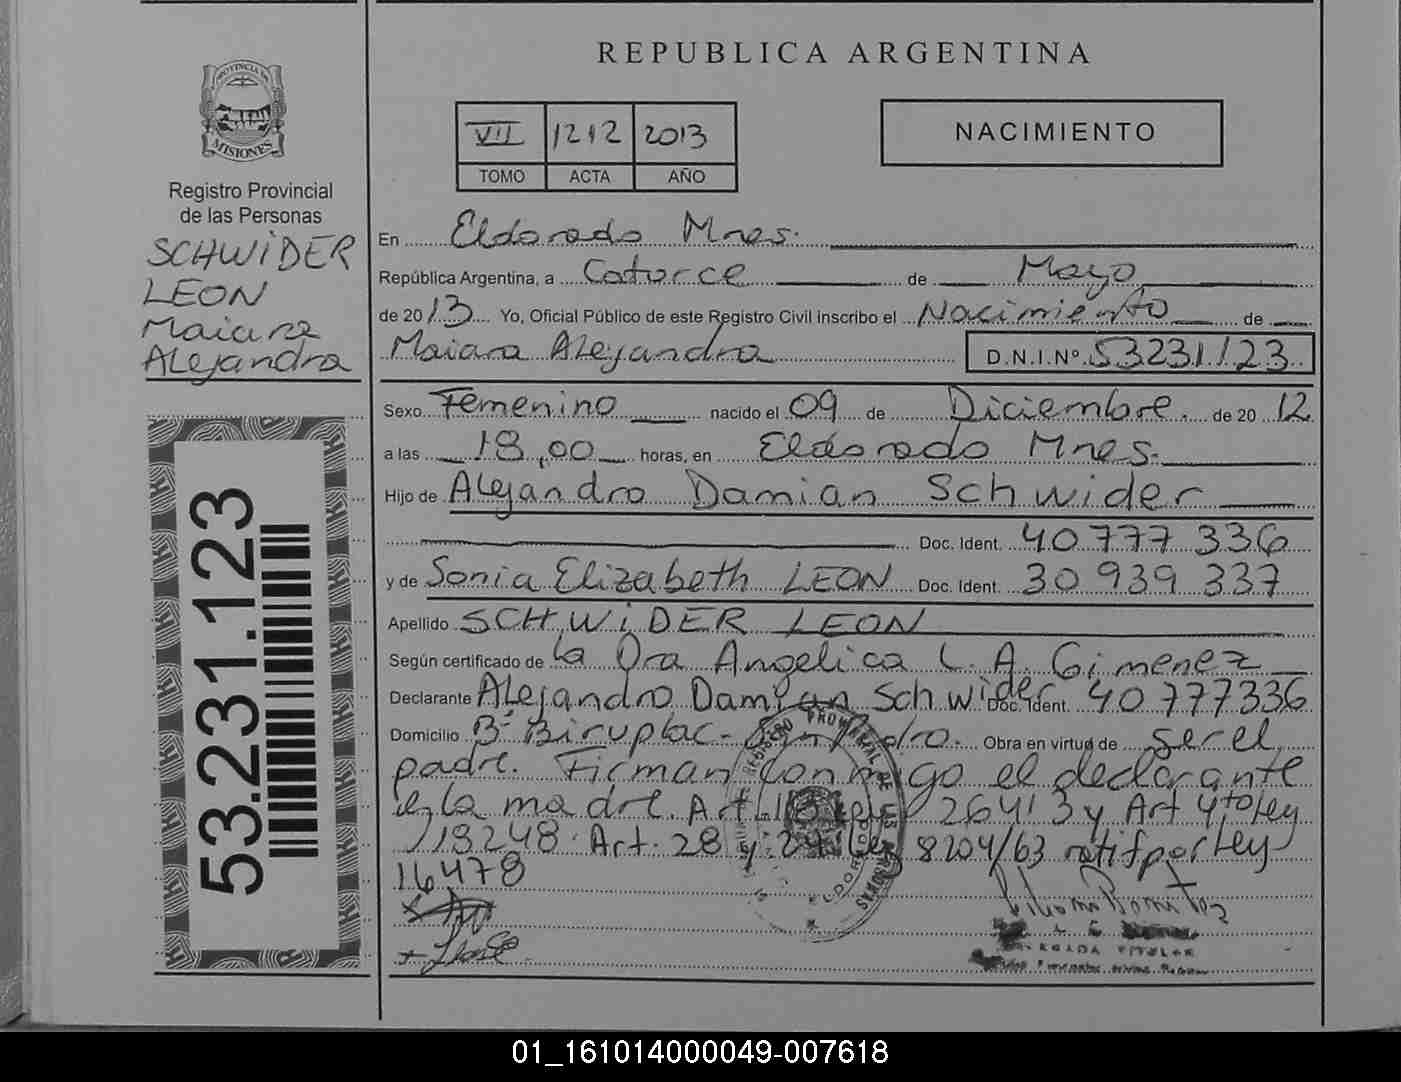 REPUBLICA ARGENTINA
PROVINCIA DE
MISIONES
Registro Provincial
de las Personas
SCHWIDER
LEON
Maiara
Alejandra
53.231.123
VII 1212 2013
TOMO ACTA AÑO
NACIMIENTO
En Eldorado Mnes.
República Argentina, a Catorce de Mayo
de 2013 Yo, Oficial Público de este Registro Civil inscribo el Nacimiento de
Maiara Alejandra D.N.I.Nº 53231123
Sexo Femenino nacido el 09 de Diciembre. de 20 12
a las 18,00 horas, en Eldorado Mnes.
Hijo de Alejandro Damian Schwider
Doc. Ident. 40 777 336
y de Sonia Elizabeth LEON Doc. Ident. 30 939 337
Apellido SCHWIDER LEON
Según certificado de la Dra Angelica L. A. Gimenez
Declarante Alejandro Damian Schwider Doc. Ident. 40777336
Domicilio Bº Biruplac- Obra en virtud de ser el
padre. Firman conmigo el declarante
e la madre. Art. ley 26413 y Art 4to ley
18248. Art. 28 y 29 ley 8204/63 ratif por ley
16478
REGISTRO PROVINCIAL DE LAS PERSONAS
01_161014000049-007618